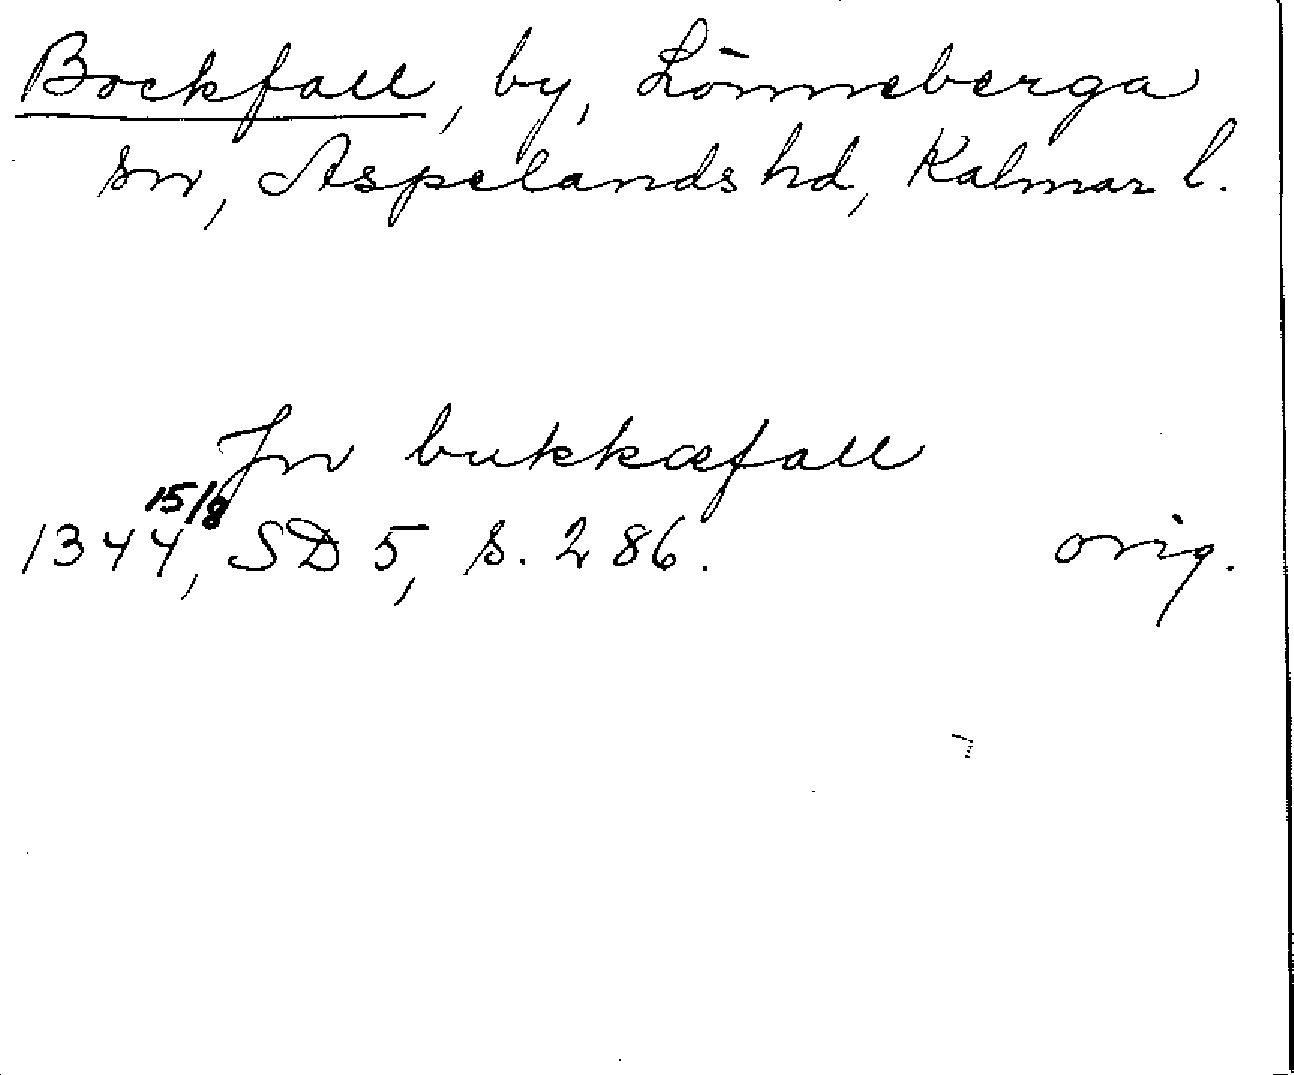 Bockfall, by, Lönneberga
sn, Aspelands hd, Kalmar l.
Jn bukkæfall
15/8
1344, SD 5, s. 286. orig.